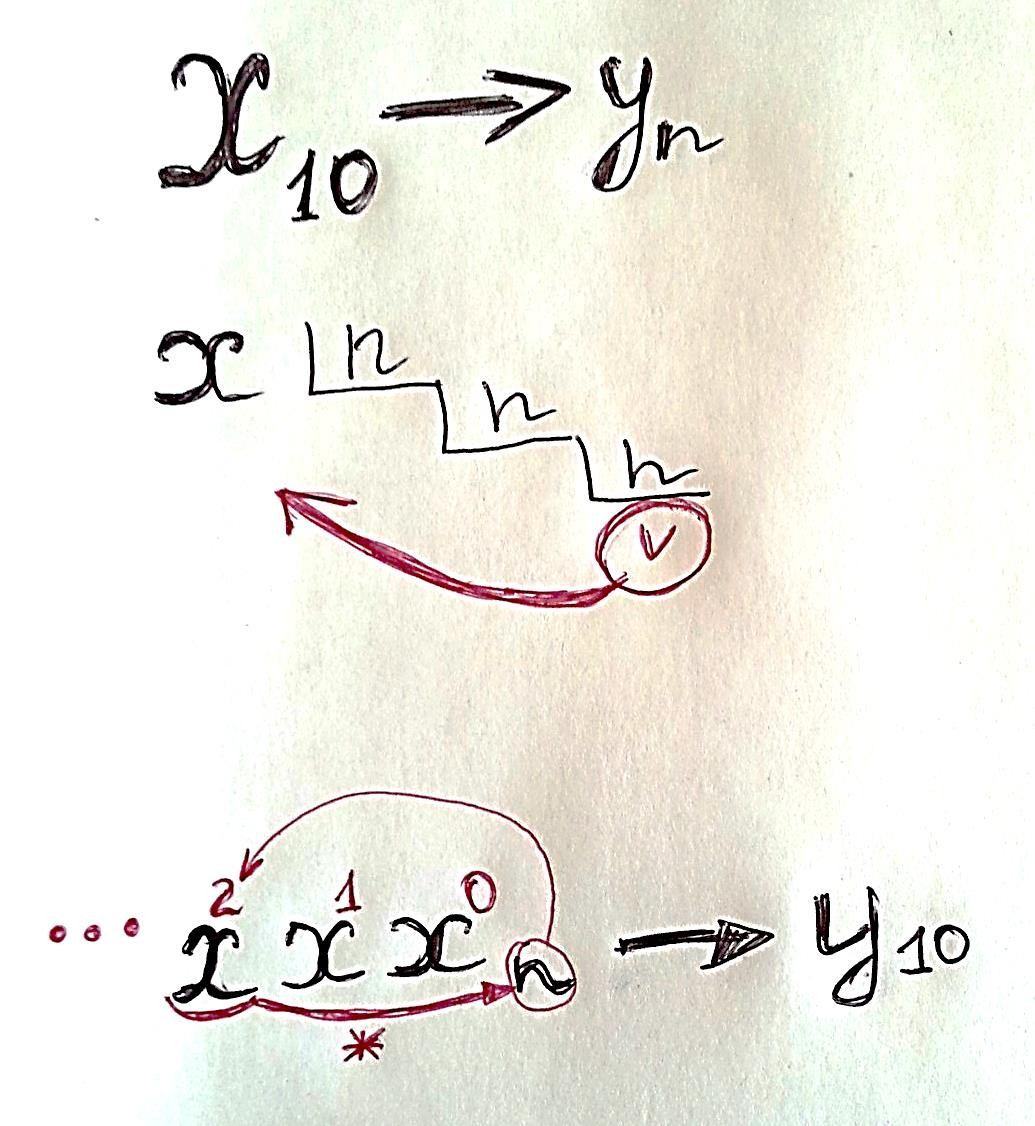 x₁₀ → yₙ
x n
n
n
v
2 1 0
... x x x n → y₁₀
*